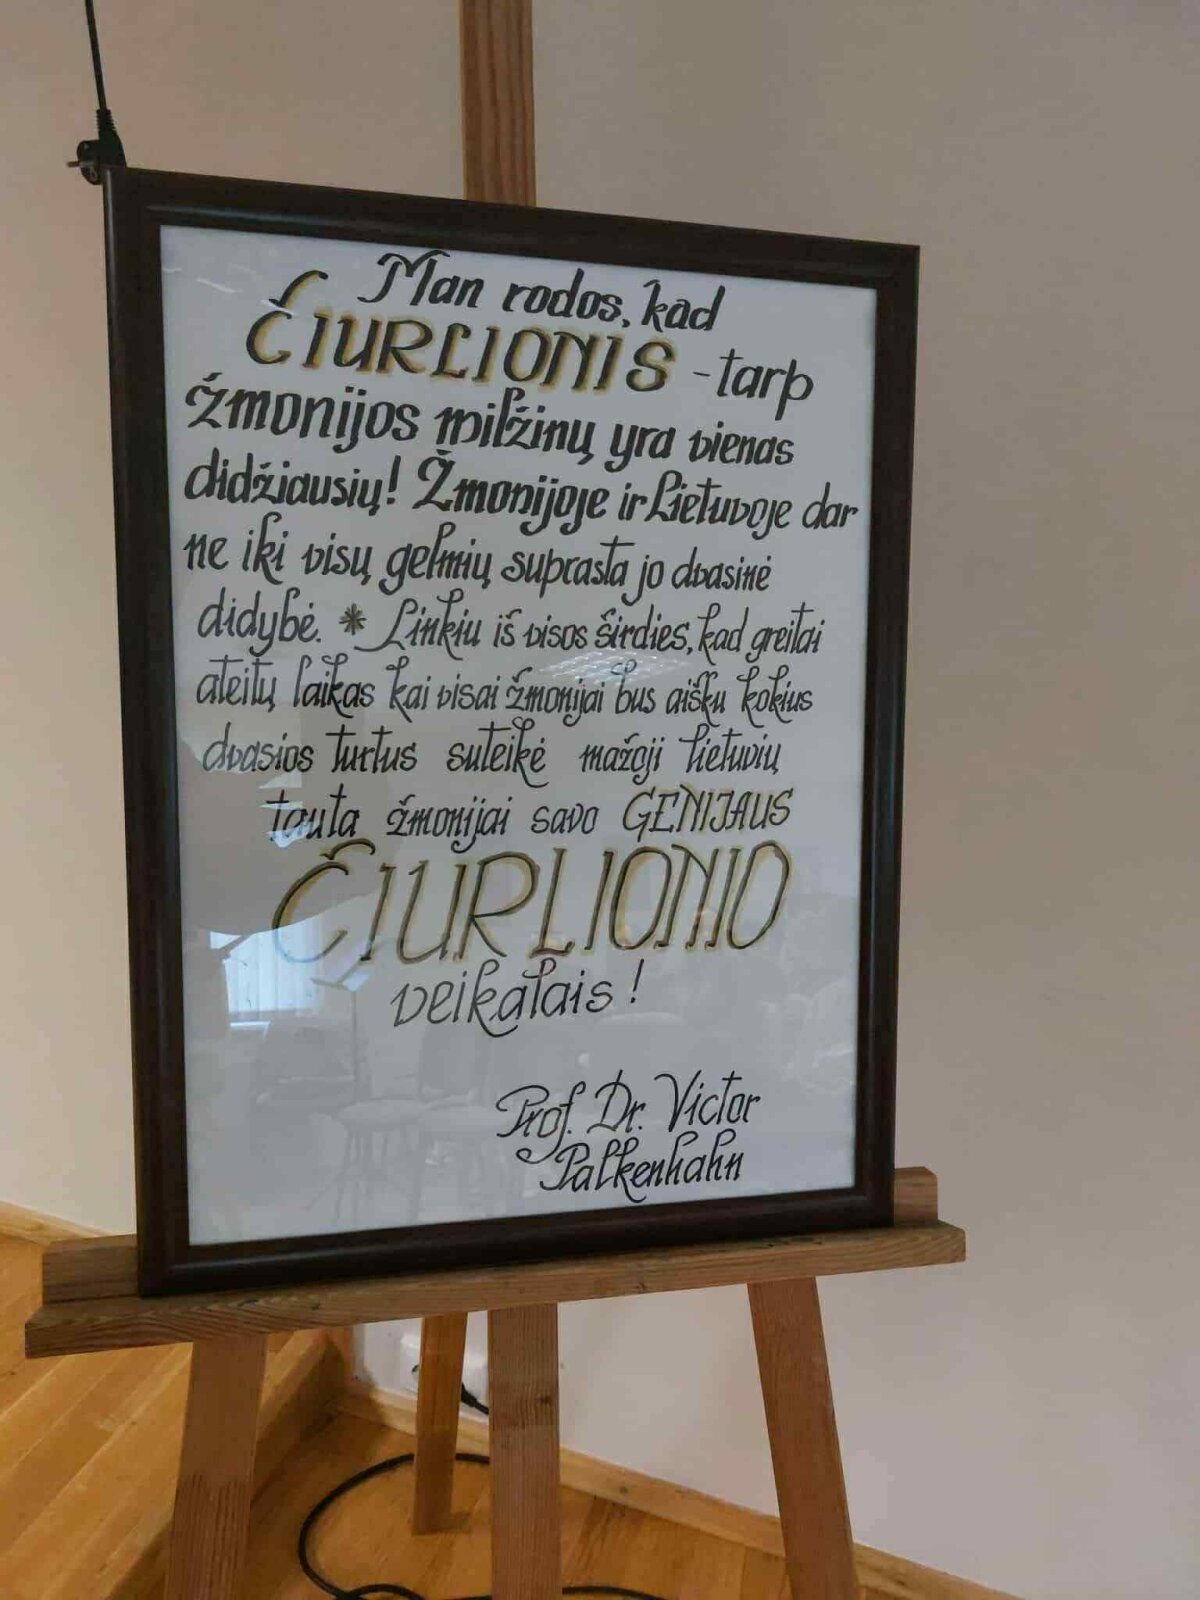 Man rodos, kad
ČIURLIONIS - tarp
žmonijos milžinų yra vienas
didžiausių! Žmonijoje ir Lietuvoje dar
ne iki visų gelmių suprasta jo dvasinė
didybė. * Linkiu iš visos širdies, kad greitai
ateitų laikas kai visai žmonijai bus aišku kokius
dvasios turtus suteikė mažoji lietuvių
tauta žmonijai savo GENIJAUS
ČIURLIONIO
veikalais!
Prof. Dr. Victor
Palkenhahn